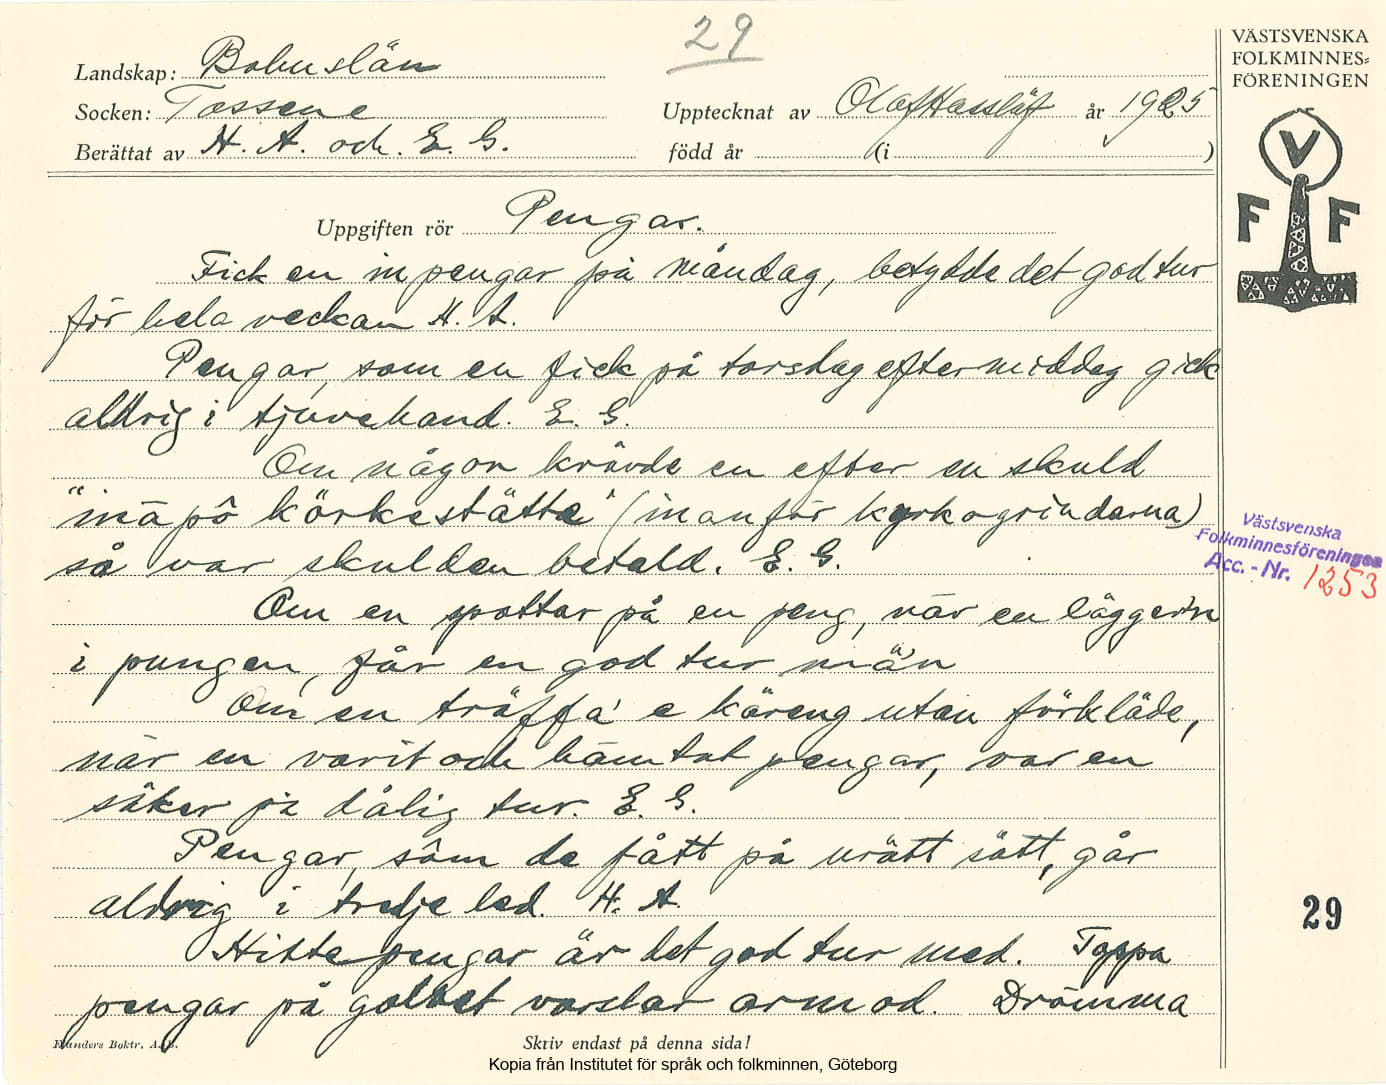 29
VÄSTSVENSKA
FOLKMINNES=
FÖRENINGEN
Landskap: Bohuslän
Socken: Tossene
Upptecknat av Olof Hasslöf år 1925
Berättat av H. A. och. E. G.
född år (i )
V
F F
Uppgiften rör Pengar.
Fick en in pengar på måndag, betydde det god tur
för hela veckan H. A.
Pengar, som en fick på torsdag eftermiddag gick
aldrig i tjuvehand. E. G.
Om någon krävde en efter en skuld
"inā pô körkestätta" (inanför kyrkogrindarna)
så var skulden betald. E. G.
Om en spottar på en peng, när en lägger'n
i pungen, får en god tur mä'n
Om en träffa' e käreng utan förkläde,
när en varit och hämtat pengar, var en
säker på dålig tur. E. G.
Pengar, som de fått på urätt sätt, går
aldrig i tredje led. H. A.
Hittepengar är det god tur med. Tappa
pengar på golvet varslar armod. Drömma
Västsvenska
Folkminnesföreningen
Acc. - Nr. 1253
29
Elanders Boktr. A.-B.
Skriv endast på denna sida!
Kopia från Institutet för språk och folkminnen, Göteborg